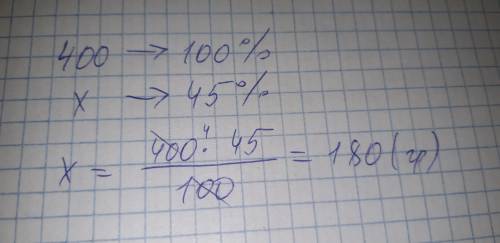 400 → 100%
x → 45%
x = 400⁴ · 45 / 100 = 180 (гр)